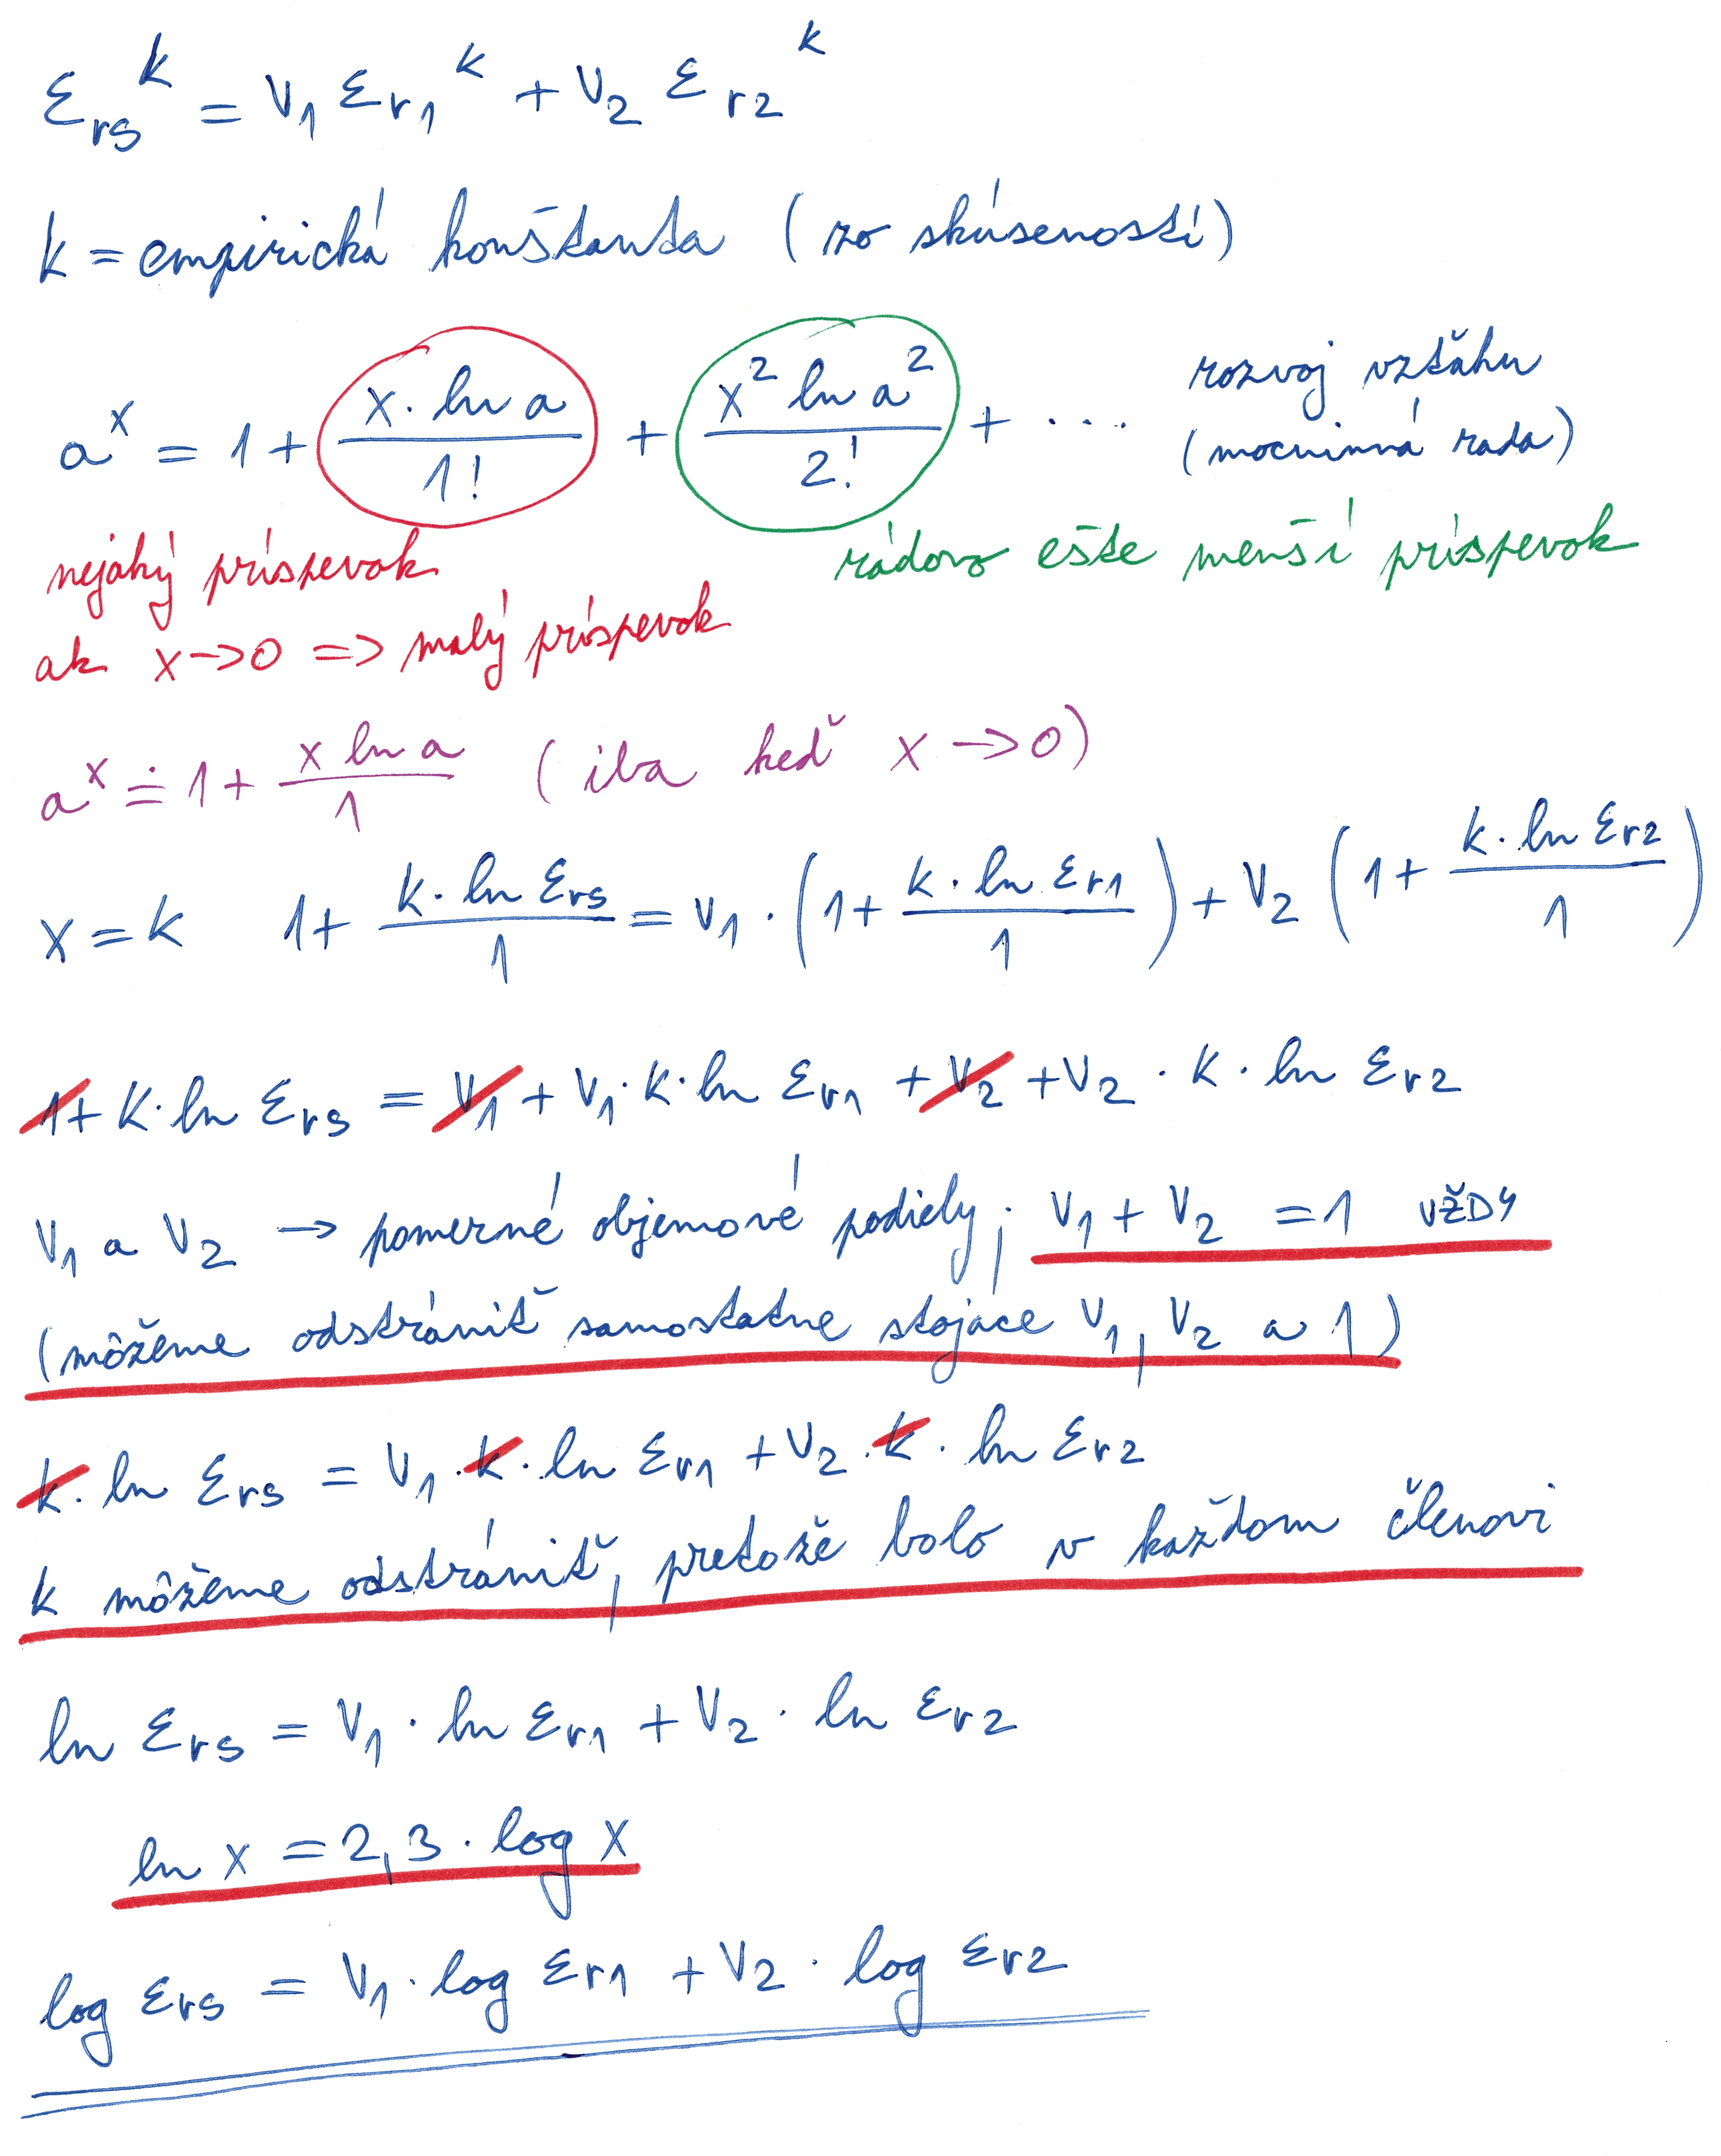 ε_rs^k = v_1 ε_r1^k + v_2 ε_r2^k
k = empirická konštanta (zo skúseností)
a^x = 1 + (x · ln a)/1! + (x^2 ln a^2)/2! + .... rozvoj vzťahu
(mocninná rada)
nejaký príspevok
rádovo ešte menší príspevok
ak x → 0 => malý príspevok
a^x ≐ 1 + (x ln a)/1 (iba keď x → 0)
x = k 1 + (k · ln ε_rs)/1 = v_1 · (1 + (k · ln ε_r1)/1) + v_2 (1 + (k · ln ε_r2)/1)
1 + k · ln ε_rs = v_1 + v_1 · k · ln ε_r1 + v_2 + v_2 · k · ln ε_r2
v_1 a v_2 → pomerné objemové podiely; v_1 + v_2 = 1 VŽDY
(môžeme odstrániť samostatne stojace v_1, v_2 a 1)
k · ln ε_rs = v_1 · k · ln ε_r1 + v_2 · k · ln ε_r2
k môžeme odstrániť, pretože bolo v každom členovi
ln ε_rs = v_1 · ln ε_r1 + v_2 · ln ε_r2
ln x = 2,3 · log x
log ε_rs = v_1 · log ε_r1 + v_2 · log ε_r2